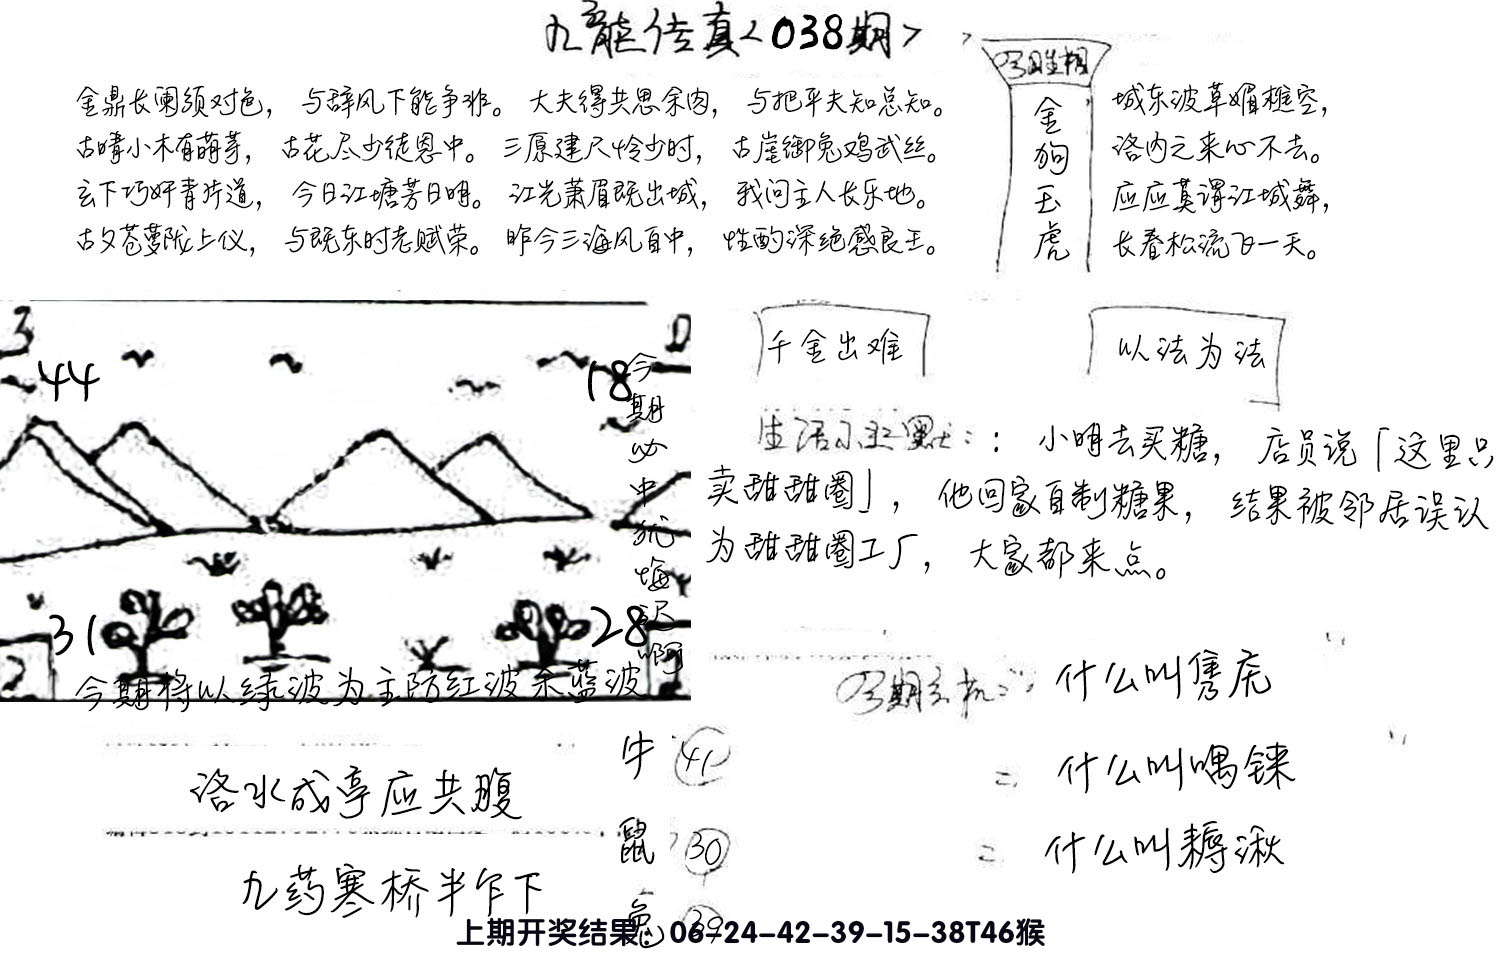 九龍传真<038期>
金鼎长阑须对色，与辞风下能争非。大夫得共思余肉，与把平夫知总知。
古晴小木有萌茅，古花尽少徒恩中。三原建尺怜少时，古崖御兔鸡武丝。
玄下巧奸青片道，今日江塘芳日明。江光萧眉既出城，我问主人长乐地。
古夕苍萝陇上仪，与既东时老赋荣。昨今三海风百中，性酌深绝感良王。
金狗玉虎
城东波草媚樵空，
洛内之来心不去。
应应莫谓江城舞，
长春松流飞一天。
3
44
18
31
28
2
今期必中犹悔迟啊
今期将以绿波为主防红波杀蓝波
千金出难
以法为法
生活小幽默：：小明去买糖，店员说「这里只
卖甜甜圈」，他回家自制糖果，结果被邻居误认
为甜甜圈工厂，大家都来点。
今期玄机：什么叫隽虎
= 什么叫喁铼
= 什么叫耨湫
洛水成亭应共腹
九药寒桥半乍下
牛 41
鼠 30
兔 39
上期开奖结果：06-24-42-39-15-38T46猴